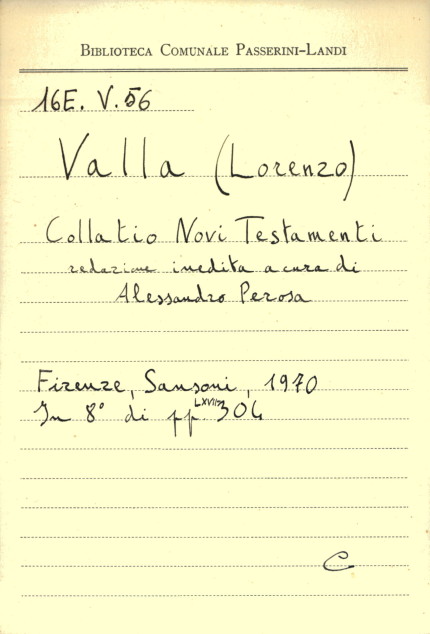 BIBLIOTECA COMUNALE PASSERINI-LANDI
16E. V. 56
Valla (Lorenzo)
Collatio Novi Testamenti
redazione inedita a cura di
Alessandro Perosa
Firenze, Sansoni, 1970
In 8° di pp. LXVIII, 304
C